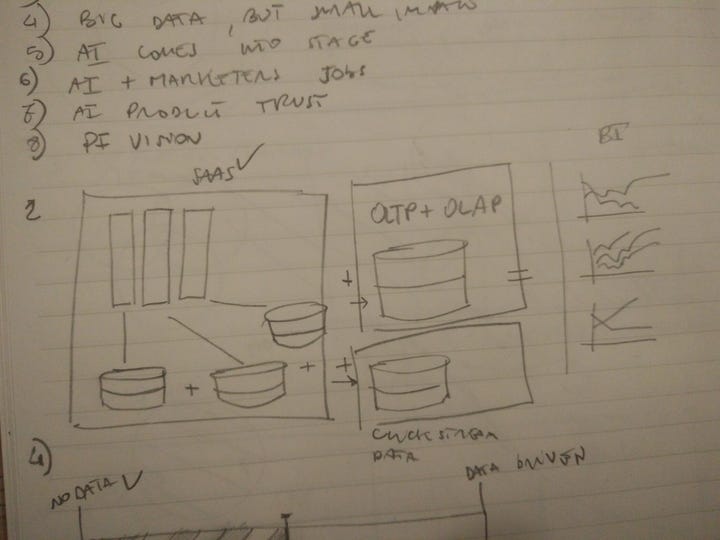 4) BIG DATA, BUT SMALL
5) AI COMES INTO STAGE
6) AI + MARKETERS JOBS
7) AI PRODUCT TRUST
8) PI VISION
SAAS ✓
BI
2
OLTP + OLAP
+
+
+
+
=
CLICK STREAM
DATA
4)
NO DATA ✓
DATA DRIVEN